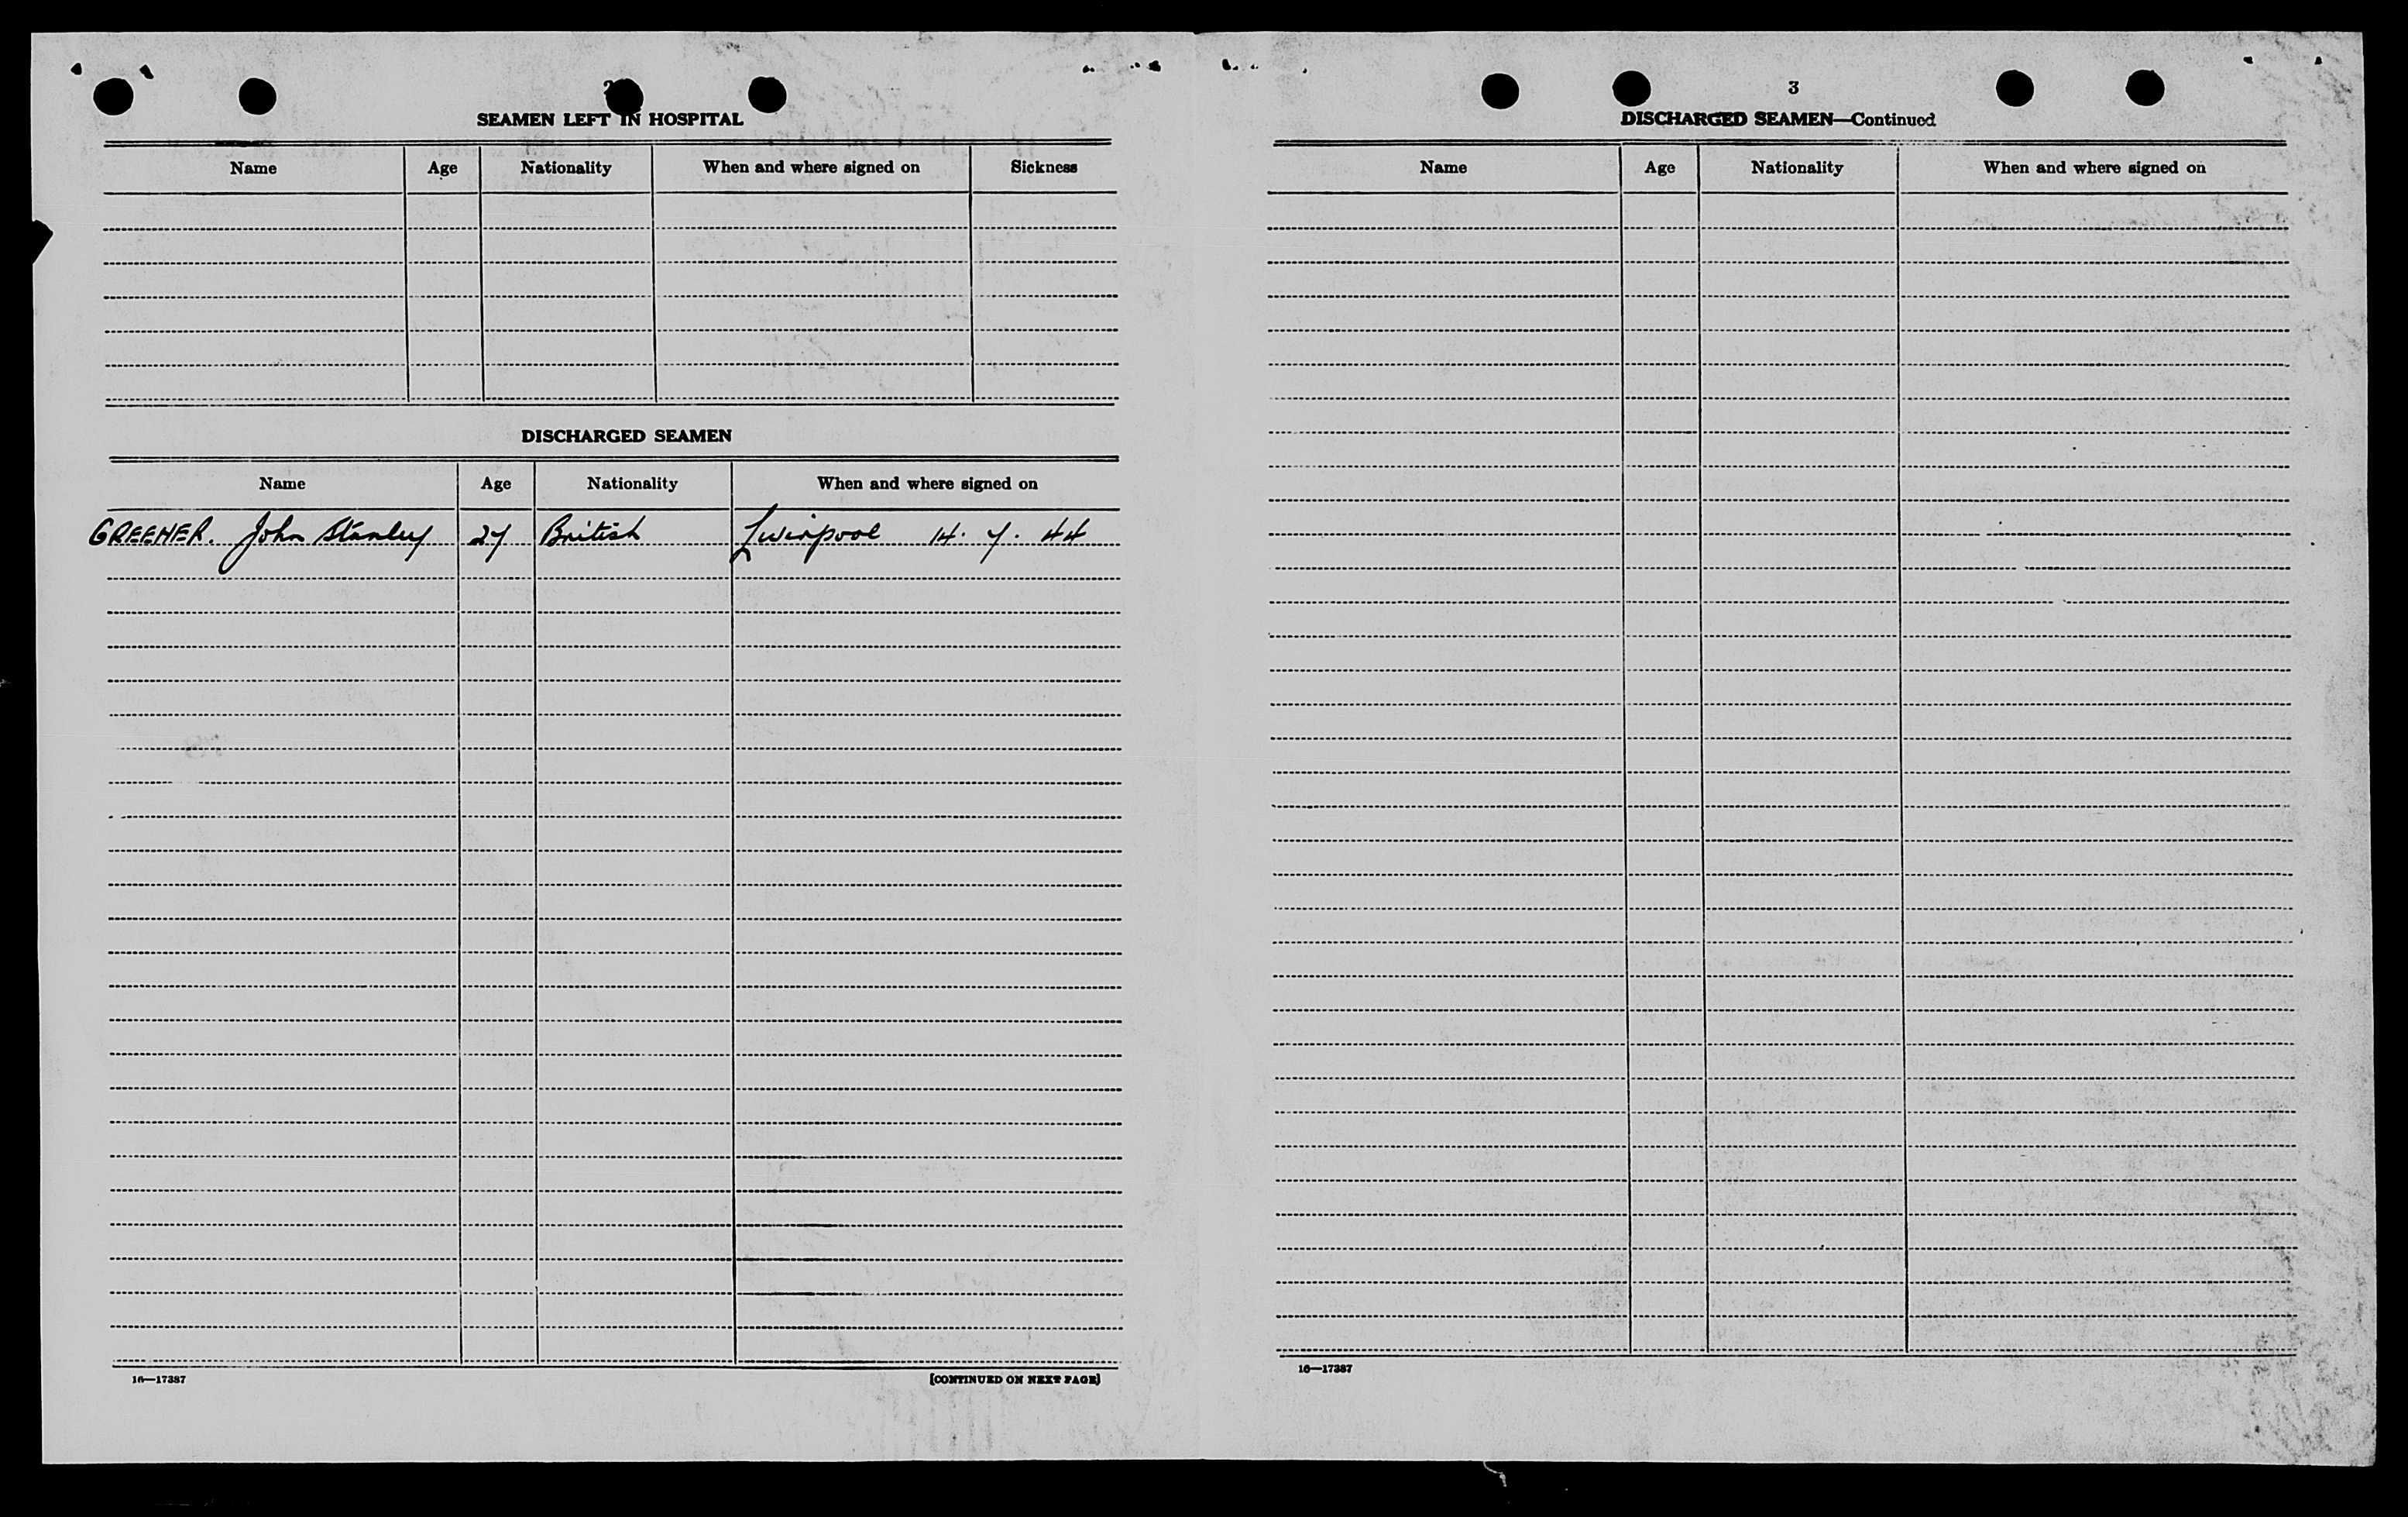 2
SEAMEN LEFT IN HOSPITAL
Name Age Nationality When and where signed on Sickness
DISCHARGED SEAMEN
Name Age Nationality When and where signed on
GREENER. John Stanley 27 British Liverpool 14. 7. 44
16—17387 [CONTINUED ON NEXT PAGE]
3
DISCHARGED SEAMEN—Continued
Name Age Nationality When and where signed on
16—17387